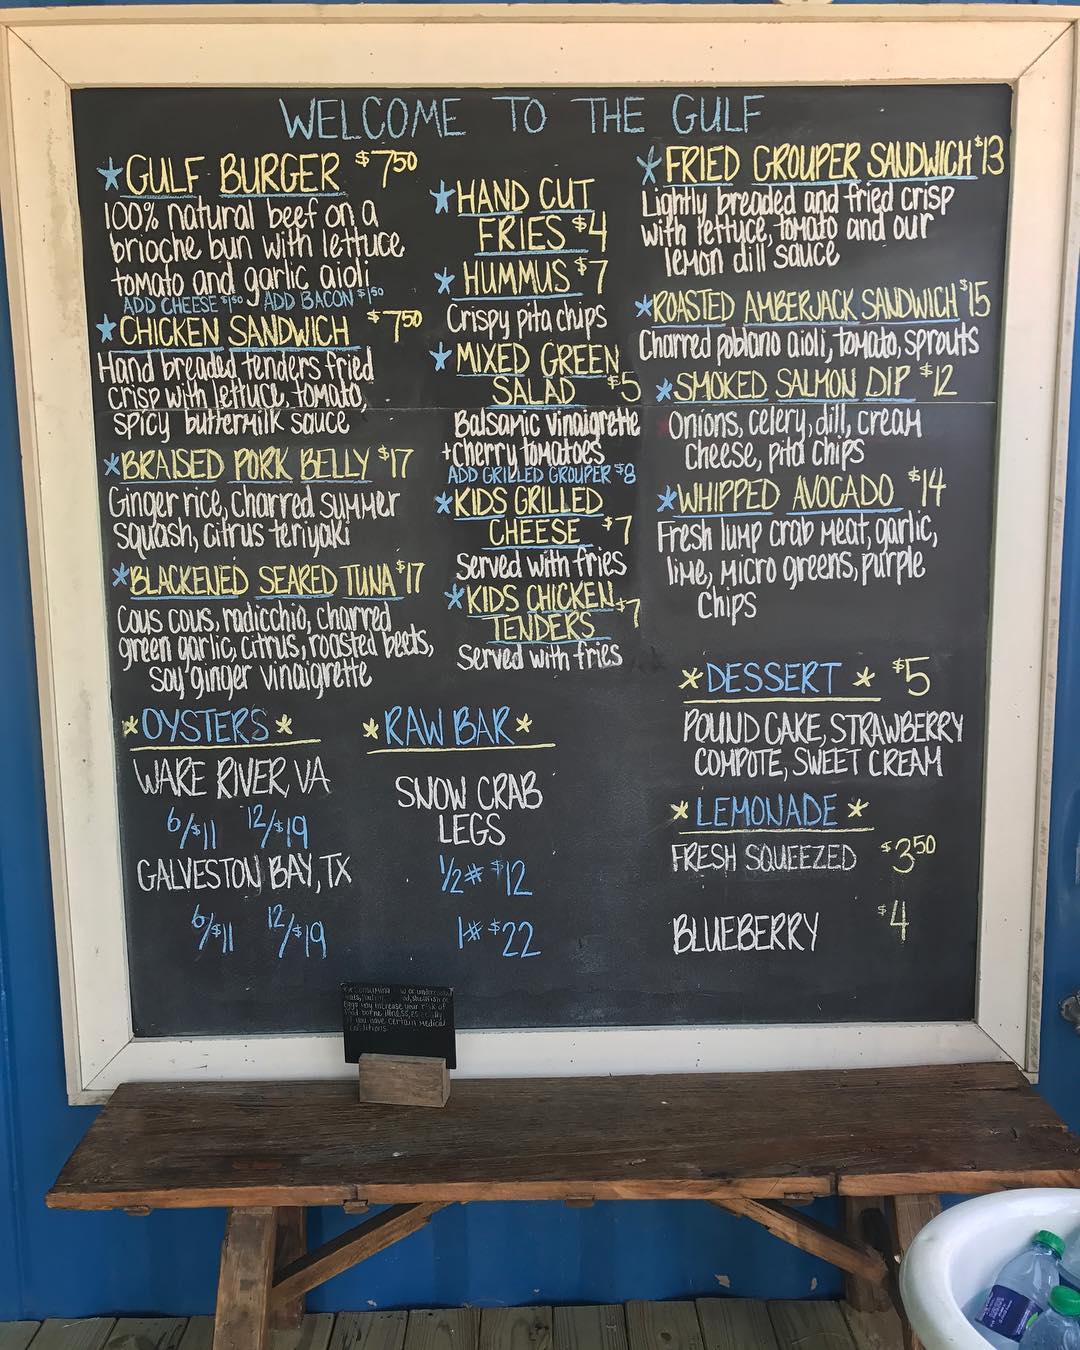 WELCOME TO THE GULF
*GULF BURGER $7.50
100% natural beef on a
brioche bun with lettuce
tomato and garlic aioli
ADD CHEESE $1.50 ADD BACON $1.50
*CHICKEN SANDWICH $7.50
Hand breaded tenders fried
crisp with lettuce, tomato,
spicy buttermilk sauce
*BRAISED PORK BELLY $17
Ginger rice, charred summer
squash, citrus teriyaki
*BLACKENED SEARED TUNA $17
Cous cous, radicchio, charred
green garlic, citrus, roasted beets,
soy ginger vinaigrette
*HAND CUT
FRIES $4
*HUMMUS $7
Crispy pita chips
*MIXED GREEN
SALAD $5
Balsamic vinaigrette
+cherry tomatoes
ADD GRILLED GROUPER $8
*KIDS GRILLED
CHEESE $7
Served with fries
*KIDS CHICKEN
TENDERS $7
Served with fries
*FRIED GROUPER SANDWICH $13
Lightly breaded and fried crisp
with lettuce, tomato and our
lemon dill sauce
*ROASTED AMBERJACK SANDWICH $15
Charred poblano aioli, tomato, sprouts
*SMOKED SALMON DIP $12
Onions, celery, dill, cream
cheese, pita chips
*WHIPPED AVOCADO $14
Fresh lump crab meat, garlic,
lime, micro greens, purple
chips
*OYSTERS*
WARE RIVER, VA
6/$11 12/$19
GALVESTON BAY, TX
6/$11 12/$19
*RAW BAR*
SNOW CRAB
LEGS
1/2# $12
1# $22
*DESSERT* $5
POUND CAKE, STRAWBERRY
COMPOTE, SWEET CREAM
*LEMONADE*
FRESH SQUEEZED $3.50
BLUEBERRY $4
consuming or
shellfish or
eggs may increase your risk of
food borne illness, especially
if you have certain medical
conditions